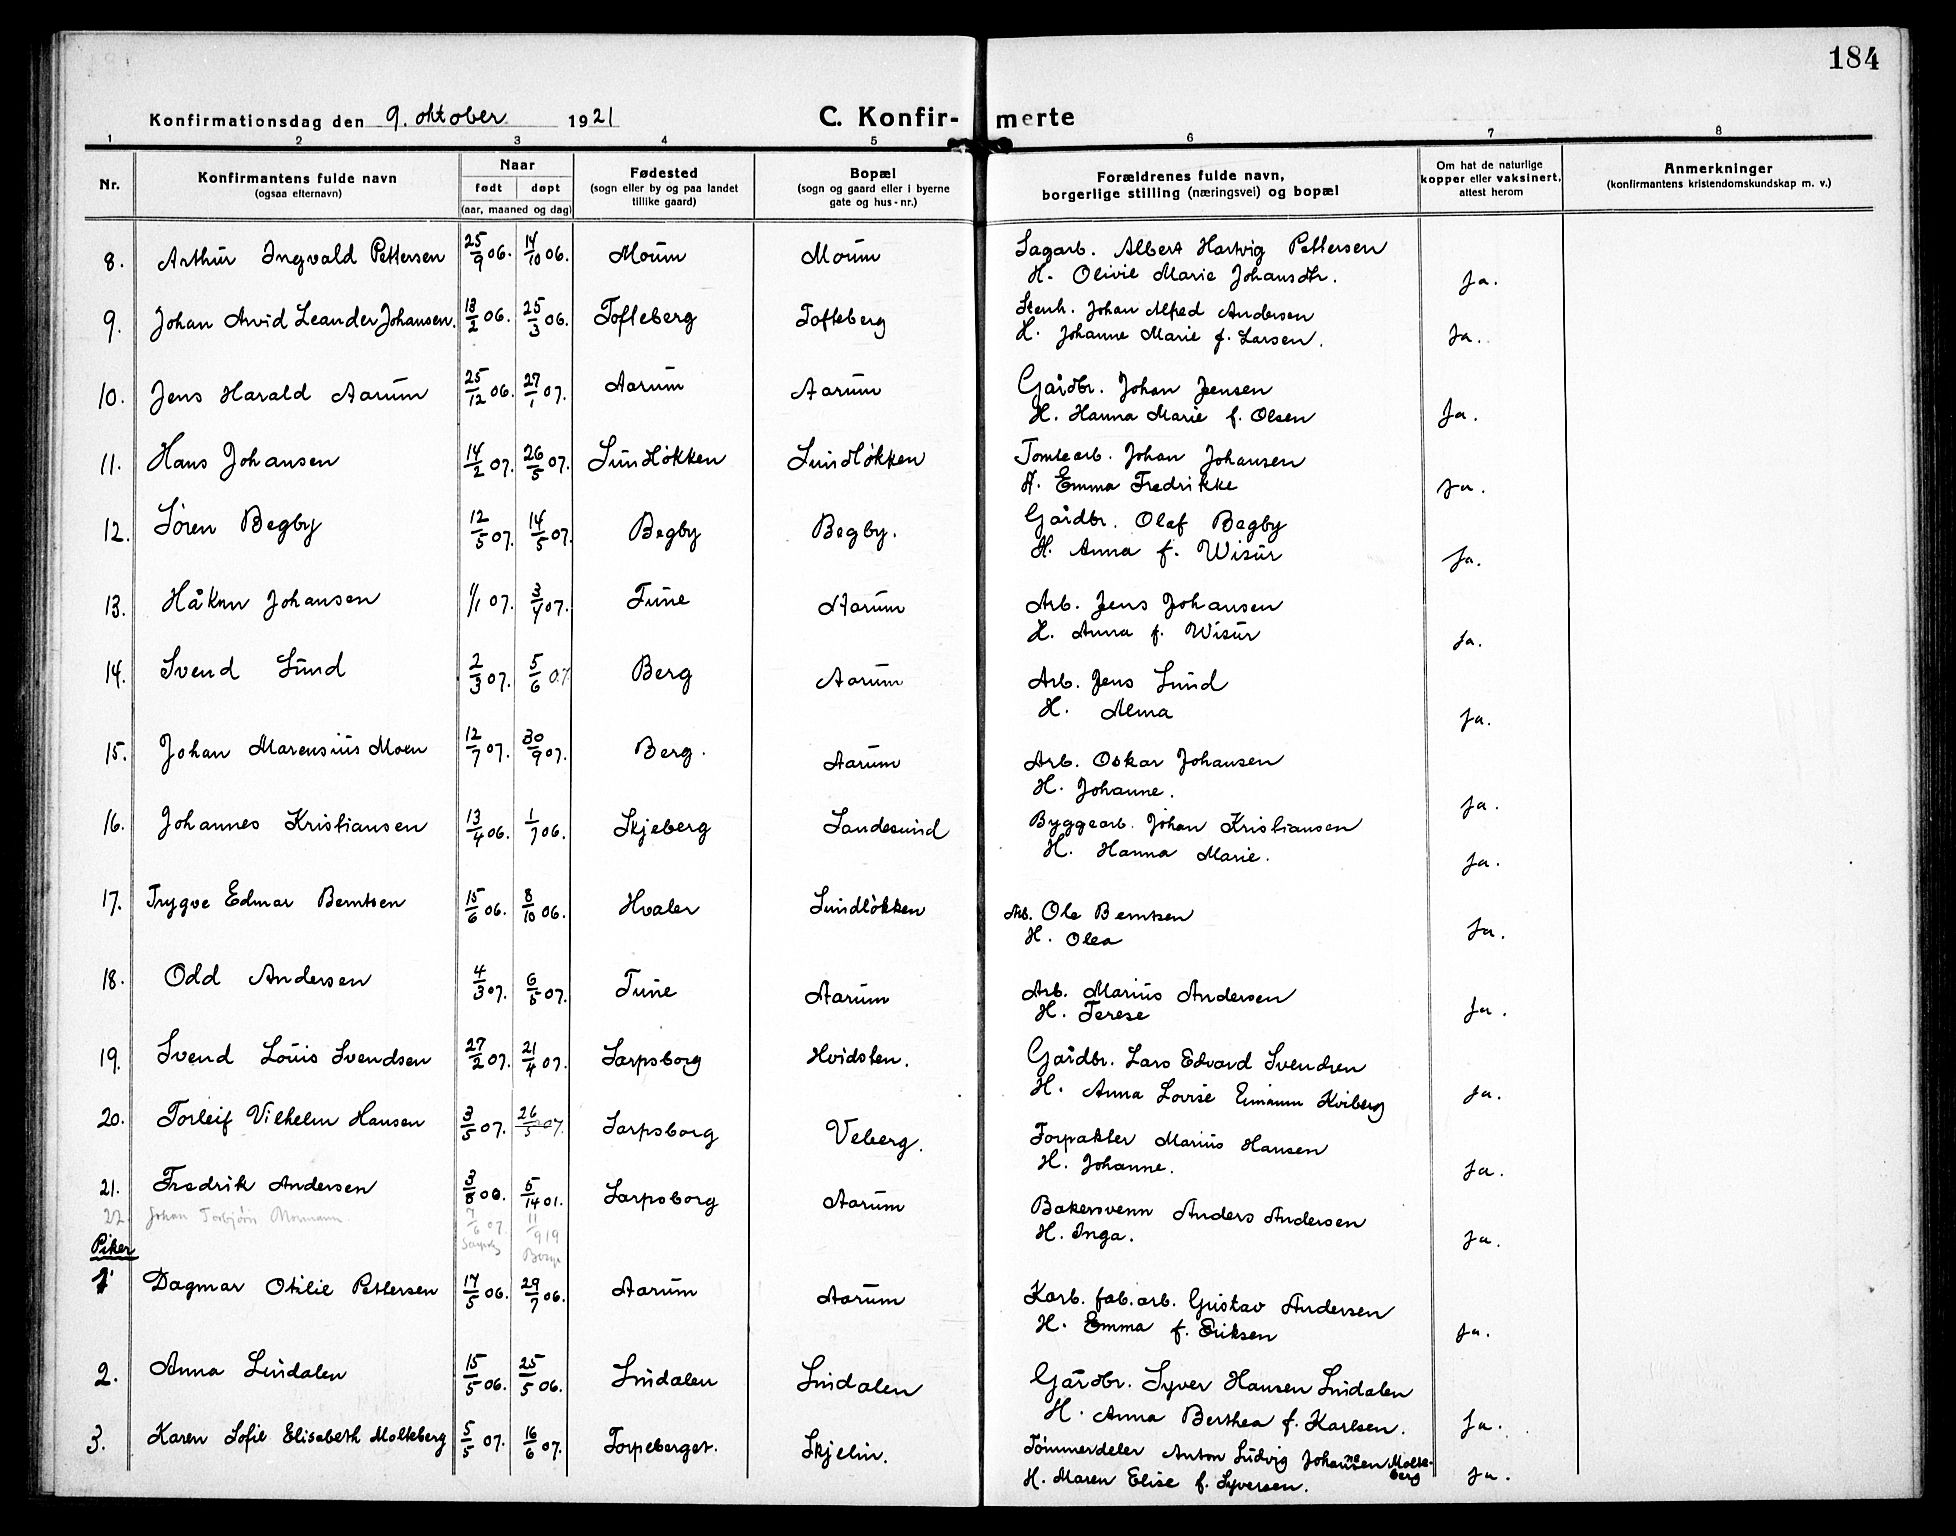 184
Konfirmationsdag den 9. oktober 1921 C. Konfirmerte
1 2 3 4 5 6 7 8
Nr. Konfirmantens fulde navn (ogsaa efternavn) Naar født døpt (aar, maaned og dag) Fødested (sogn eller by og paa landet tillike gaard) Bopæl (sogn og gaard eller i byerne gate og hus-nr.) Forældrenes fulde navn, borgerlige stilling (næringsvei) og bopæl Om hat de naturlige kopper eller vaksinert, attest herom Anmerkninger (konfirmantens kristendomskundskap m. v.)
8. Arthur Ingvald Pettersen 25/9 06. 14/10 06. Moum Moum Sagarb. Albert Hartvig Pettersen
H. Olivie Marie Johansdtr. Ja.
9. Johan Arvid Leander Johansen. 18/2 06. 25/3 06. Tofteberg Tofteberg Stenh. Johan Alfred Andersen
H. Johanne Marie f. Larsen. Ja.
10. Jens Harald Aarum 25/12 06. 27/1 07. Aarum Aarum Gårdbr. Johan Jensen
H. Hanna Marie f. Olsen Ja.
11. Hans Johansen 14/2 07. 26/5 07. Lundløkken Lundløkken Tomtearb. Johan Johansen
H. Emma Fredrikke Ja.
12. Søren Begby 12/5 07. 14/5 07. Begby Begby. Gårdbr. Olaf Begby
H. Anna f. Wisur Ja.
13. Håkon Johansen 1/1 07. 3/4 07. Tune Aarum Arb. Jens Johansen
H. Anna f. Wisur Ja.
14. Svend Lund 2/3 07. 5/6 07 Berg Aarum Arb. Jens Lund
H. Alma Ja.
15. Johan Marensius Moen 12/7 07. 30/9 07. Berg. Aarum Arb. Oskar Johansen
H. Johanne. Ja.
16. Johannes Kristiansen 13/4 06. 1/7 06. Skjeberg Sandesund Byggearb. Johan Kristiansen
H. Hanna Marie. Ja.
17. Trygve Edmar Berntsen 15/6 06. 8/10 06. Hvaler Lundløkken Arb. Ole Berntsen
H. Olea Ja.
18. Odd Andersen 4/3 07. 6/5 07. Tune Aarum Arb. Marius Andersen
H. Terese Ja.
19. Svend Louis Svendsen 27/2 07. 21/4 07. Sarpsborg Hvidsten. Gårdbr. Lars Edvard Svendsen
H. Anna Lovise Kviberg Ja.
20. Torleif Vilhelm Hansen 3/5 07. 26/5 07. Sarpsborg Veberg. Forpakter Marius Hansen
H. Johanne. Ja.
21. Fredrik Andersen 3/8 00. 5/14 01. Sarpsborg Aarum Bakersvenn Anders Andersen
H. Inga. Ja.
22. Johan Torbjørn Mormann. 7/6 07. 11/9 19
Piker
1 Dagmar Otilie Pettersen 17/5 06. 29/7 06. Aarum Aarum Karb. fab. arb. Gustav Andersen
H. Emma f. Eriksen Ja.
2. Anna Lindalen 15/5 06. 25/5 06. Lindalen Lindalen Gårdbr. Syver Hansen Lindalen
H. Anna Berthea f. Karlsen. Ja.
3. Karen Sofie Elisabeth Molteberg 5/5 07. 16/6 07. Torpeberget. Skjelin. Tømmerdeler Anton Ludvig Johannesen Molteberg
H. Maren Elise f. Syversen. Ja.